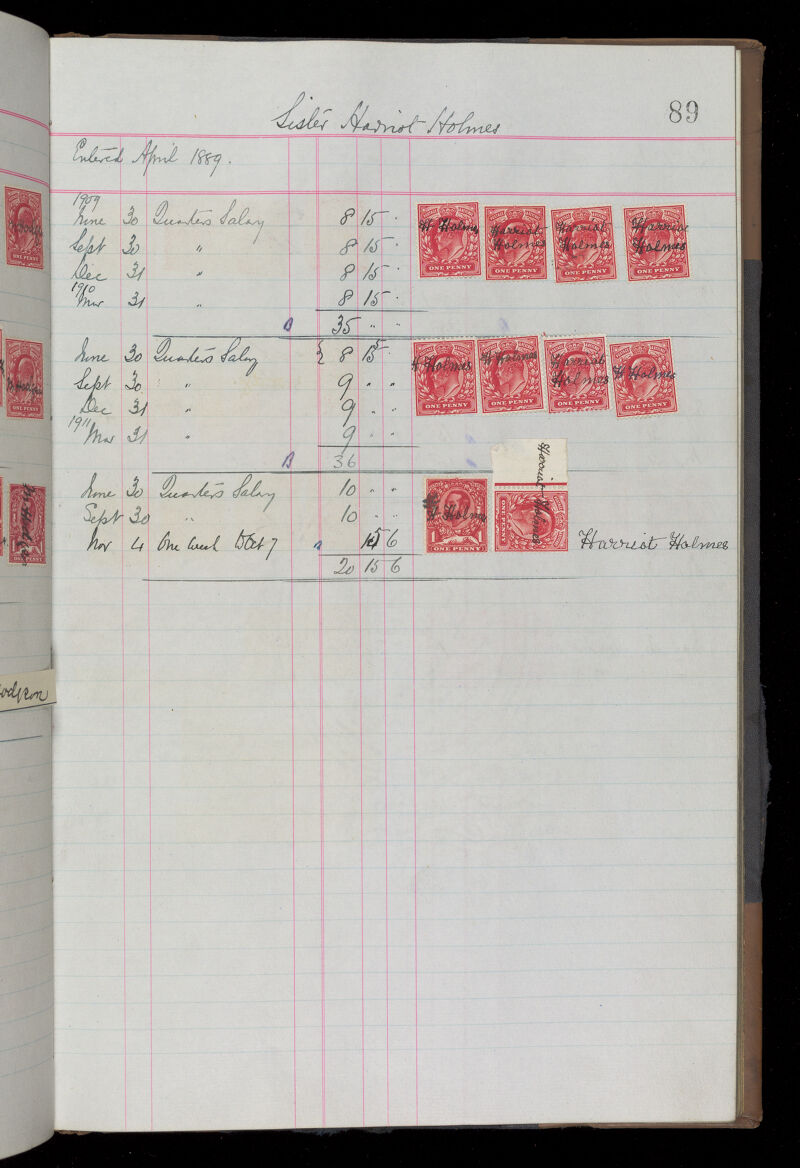 89
Sister Harriot Holmes
Entered April 1889.
1909
June 30 Quarters Salary 8 15 "
Sept 30 " 8 15 "
Dec 31 " 8 15 "
1910
Mar 31 " 8 15 "
B 35 " "
June 30 Quarters Salary { 8 15 "
Sept 30 " 9 " "
Dec 31 " 9 " "
1911
Mar 31 " 9 " "
B 36
June 30 Quarters Salary 10 " "
Sept 30 " 10 " "
Nov 4 One week to Oct 7 15 6
20 15 6
H Holmes
ONE PENNY
Harriot
Holmes
ONE PENNY
Harriot
Holmes
ONE PENNY
Harriot
Holmes
ONE PENNY
H Holmes
ONE PENNY
H Holmes
ONE PENNY
Harriot
Holmes
ONE PENNY
H Holmes
ONE PENNY
H Holmes
ONE PENNY
Harriot Holmes
ONE PENNY
Harriot Holmes